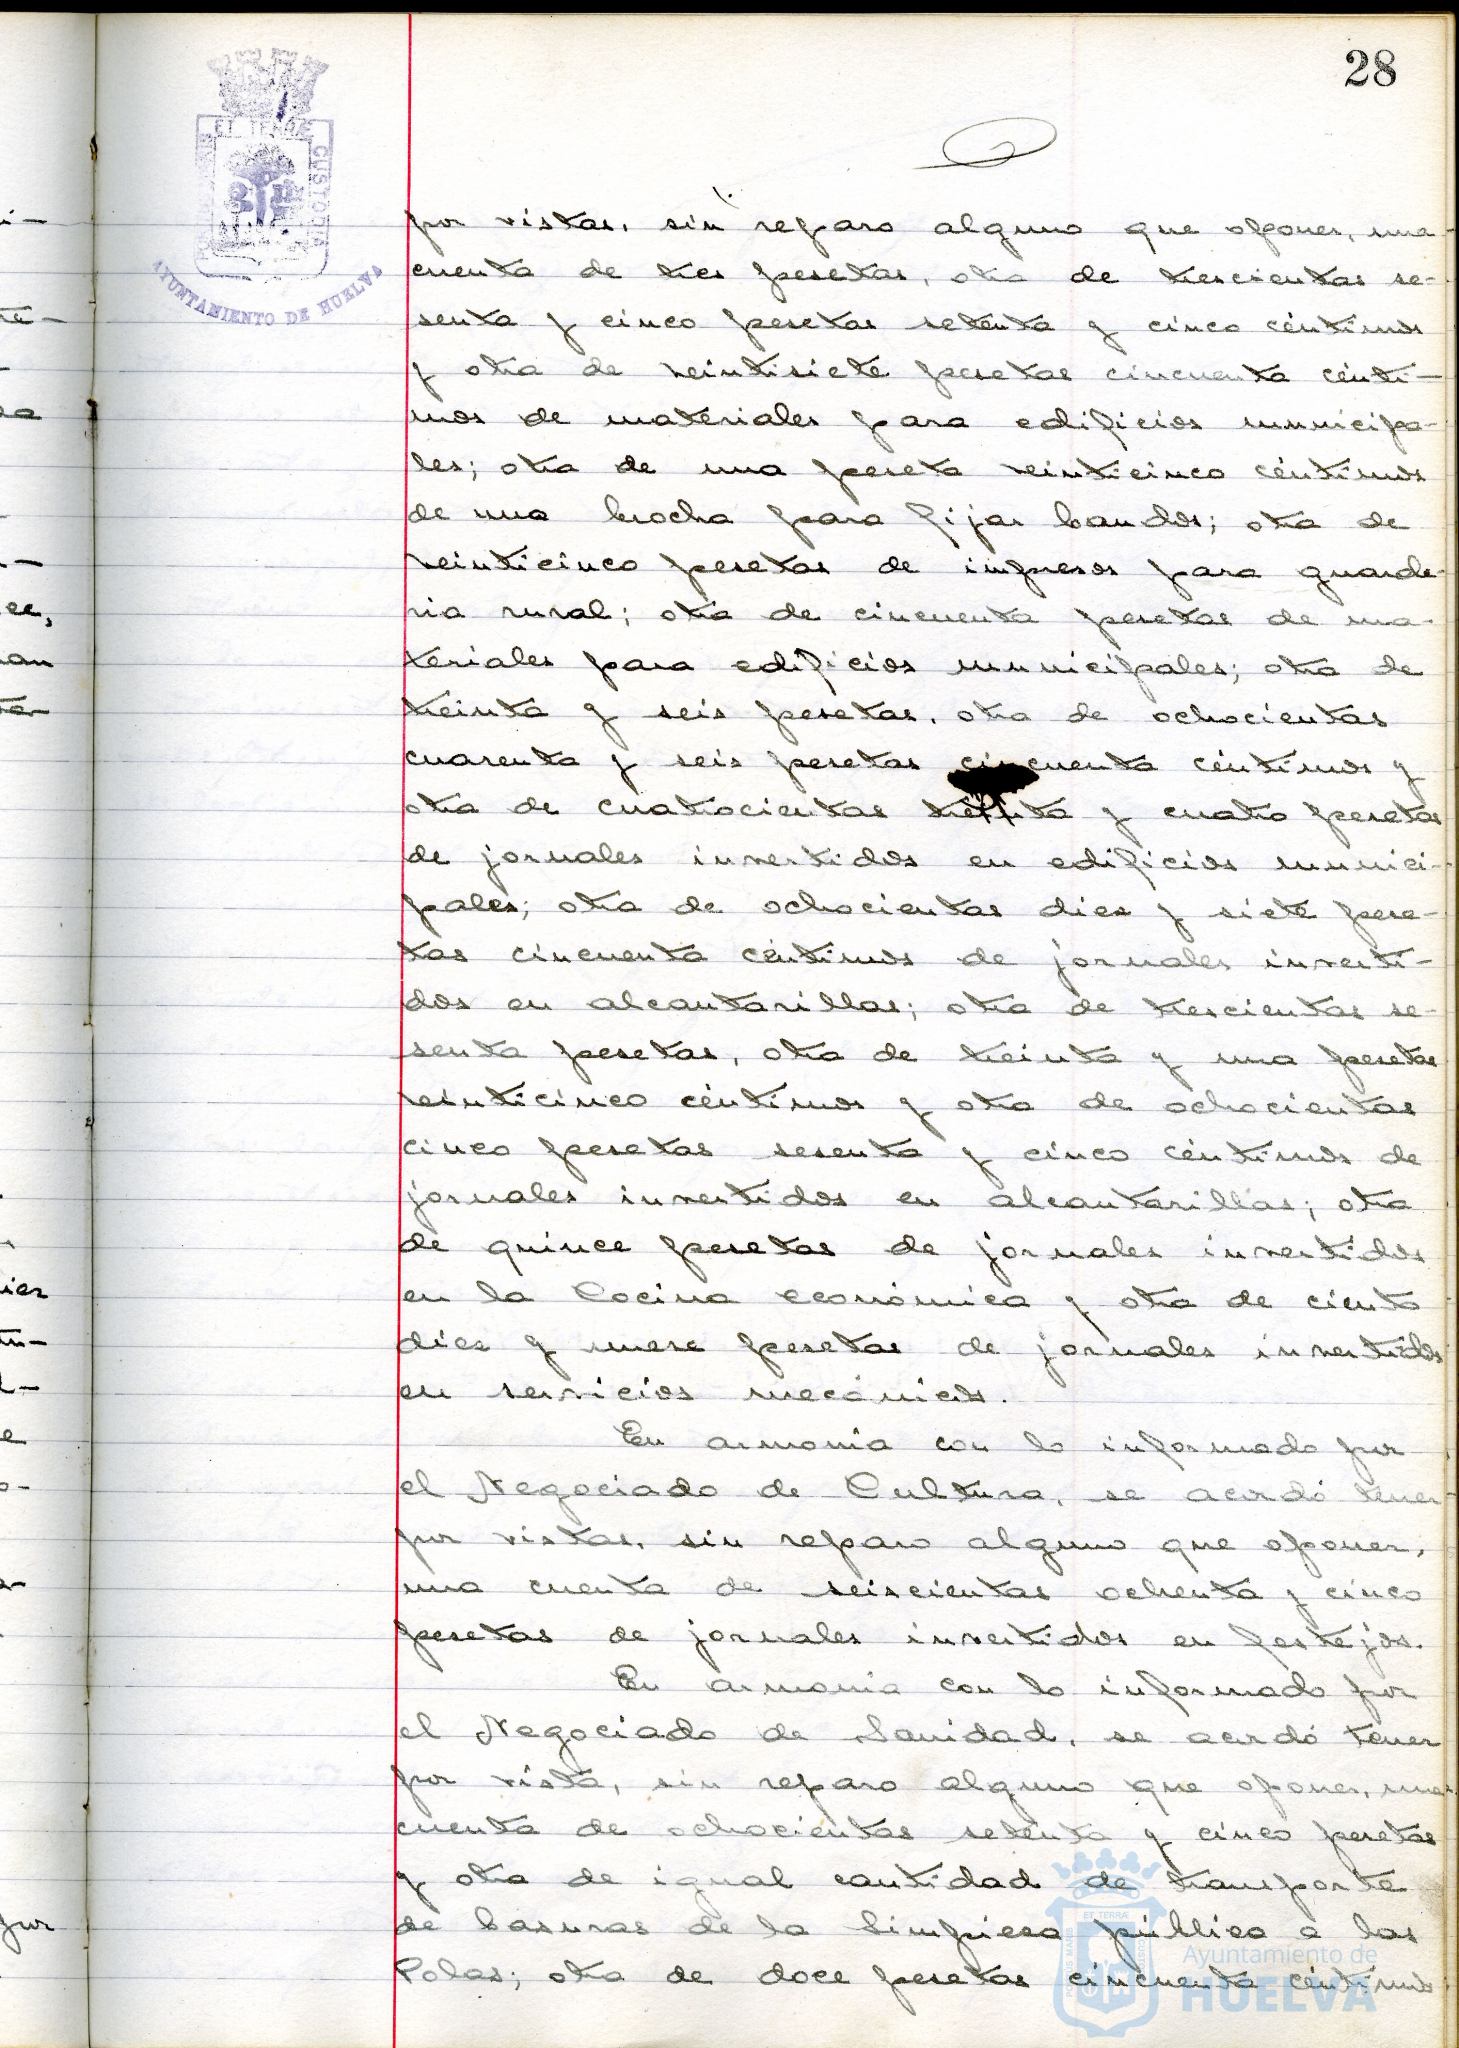 28
ET TERRÆ
CUSTODIA
AYUNTAMIENTO DE HUELVA
por vistas, sin reparo alguno que oponer, una
cuenta de tres pesetas, otra de trescientas se-
senta y cinco pesetas setenta y cinco céntimos
y otra de veintisiete pesetas cincuenta cénti-
mos de materiales para edificios municipa-
les; otra de una peseta veinticinco céntimos
de una brocha para fijar bandos; otra de
veinticinco pesetas de impresos para guarde-
ria rural; otra de cincuenta pesetas de ma-
teriales para edificios municipales; otra de
treinta y seis pesetas, otra de ochocientas
cuarenta y seis pesetas cincuenta céntimos y
otra de cuatrocientas treinta y cuatro pesetas
de jornales invertidos en edificios munici-
pales; otra de ochocientas diez y siete pese-
tas cincuenta céntimos de jornales inverti-
dos en alcantarillas; otra de trescientas se-
senta pesetas, otra de treinta y una pesetas
veinticinco céntimos y otra de ochocientas
cinco pesetas sesenta y cinco céntimos de
jornales invertidos en alcantarillas; otra
de quince pesetas de jornales invertidos
en la Cocina económica y otra de ciento
diez y nueve pesetas de jornales invertidos
en servicios mecánicos.
En armonia con lo informado por
el Negociado de Cultura, se acordó tener
por vistas, sin reparo alguno que oponer,
una cuenta de seiscientas ochenta y cinco
pesetas de jornales invertidos en festejos.
En armonia con lo informado por
el Negociado de Sanidad, se acordó tener
por vista, sin reparo alguno que oponer, una
cuenta de ochocientas setenta y cinco pesetas
y otra de igual cantidad de transporte
de basuras de la limpieza pública a las
Polas; otra de doce pesetas cincuenta céntimos
PORTUS MARIS ET TERRÆ CUSTODIA
Ayuntamiento de
HUELVA